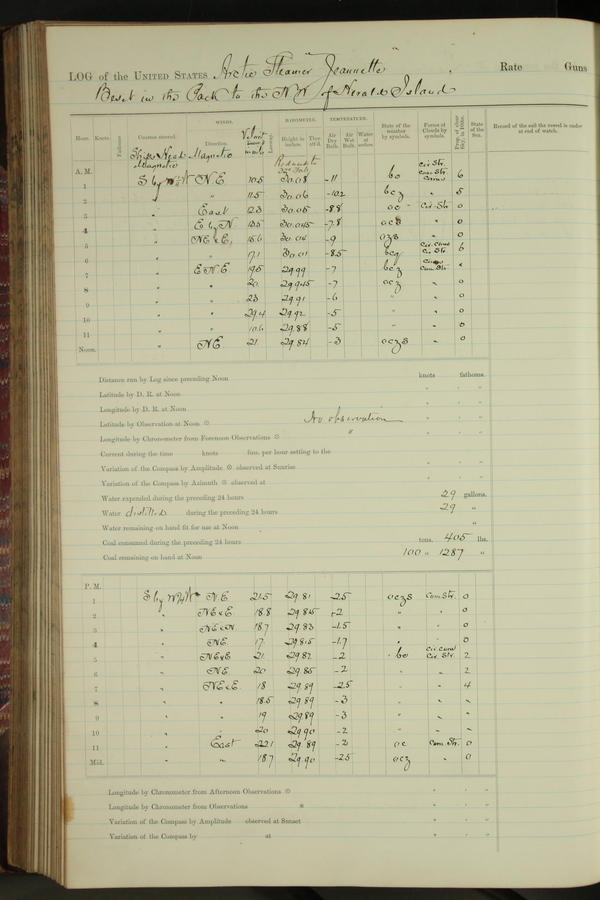 LOG of the UNITED STATES Arctic Steamer "Jeannette", Rate Guns
Beset in the Pack to the N.W. of Herald Island
Hour. Knots. Fathoms. Courses steered. WINDS. Direction. Leeway. BAROMETER. Height in inches. Ther. att'd. TEMPERATURE. Air Dry Bulb. Air Wet Bulb. Water at surface. State of the weather by symbols. Forms of Clouds by symbols. State of the Sea. Record of the sail the vessel is under at end of watch.
Ship's Head Magnetic
A. M.
1 S by W½W N.E. 10.5 30.08 -11 bc 6
2 " " 11.5 30.06 -10.2 bcz " 5
3 " East 12.3 30.05 -8.8 oc Cir. Str. 0
4 " E by N 13.5 30.045 -7.8 ocs " 0
5 " 15.6 30.04 -9 ozs " 0
6 " " 17.1 30.01 -8.5 bcz 6
7 " E.N.E. 19.5 29.99 -7 bcz
8 " " 20. 29.945 -7 ocz " 0
9 " " 23 29.91 -6 " " 0
10 " " 29.4 29.92 -5 " " 0
11 " " 29.88 -5 " " 0
Noon. " N.E. 21 29.84 -3 oczs " 0
Distance run by Log since preceding Noon knots fathoms.
Latitude by D. R. at Noon
Longitude by D. R. at Noon
Latitude by Observation at Noon No observation
Longitude by Chronometer from Forenoon Observations "
Current during the time knots fms. per hour setting to the
Variation of the Compass by Amplitude observed at Sunrise
Variation of the Compass by Azimuth observed at
Water expended during the preceding 24 hours 29 gallons.
Water distilled during the preceding 24 hours 29 "
Water remaining on hand fit for use at Noon "
Coal consumed during the preceding 24 hours tons. 405 lbs.
Coal remaining on hand at Noon 100 " 1287 "
P. M.
1 S by W½W N.E. 21.5 29.81 -2.5 oczs Cum. Str. 0
2 " 18.8 29.825 -2 " " 0
3 " 18.7 29.83 -1.5 " " 0
4 " N.E. 17. 29.815 -1.7 " " 0
5 " 21. 29.82 -2 bc Cir. Cum. Cir. Str. 2
6 " N.E. 20 29.85 -2 " " 2
7 " 18 29.89 -2.5 " " 4
8 " " 18.5 29.89 -3 " " "
9 " " 19 29.89 -3 " " "
10 " " 20 29.90 -2 " " "
11 " East 22.1 29.89 -2 oc Cum. Str. 0
Mid. " " 18.7 29.90 -2.5 ocz " 0
Longitude by Chronometer from Afternoon Observations
Longitude by Chronometer from Observations
Variation of the Compass by Amplitude observed at Sunset
Variation of the Compass by at